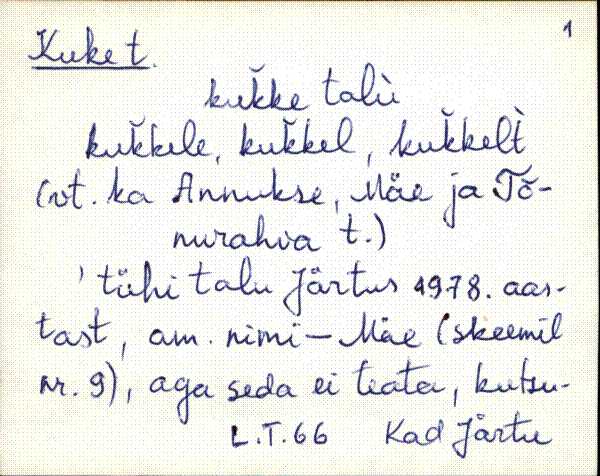 1
Kuke t.
kuk̆ke talù
kuk̆kele, kuk̆kel, kuk̆kelt̀
(vt. ka Annukse, Mäe ja Tõ-
nurahva t.)
' tühi talu Järtus 1978. aas-
tast, am. nimi – Mäe (skeemil
nr. 9), aga seda ei teata, kutsu-
L.T. 66 Kad Järtu